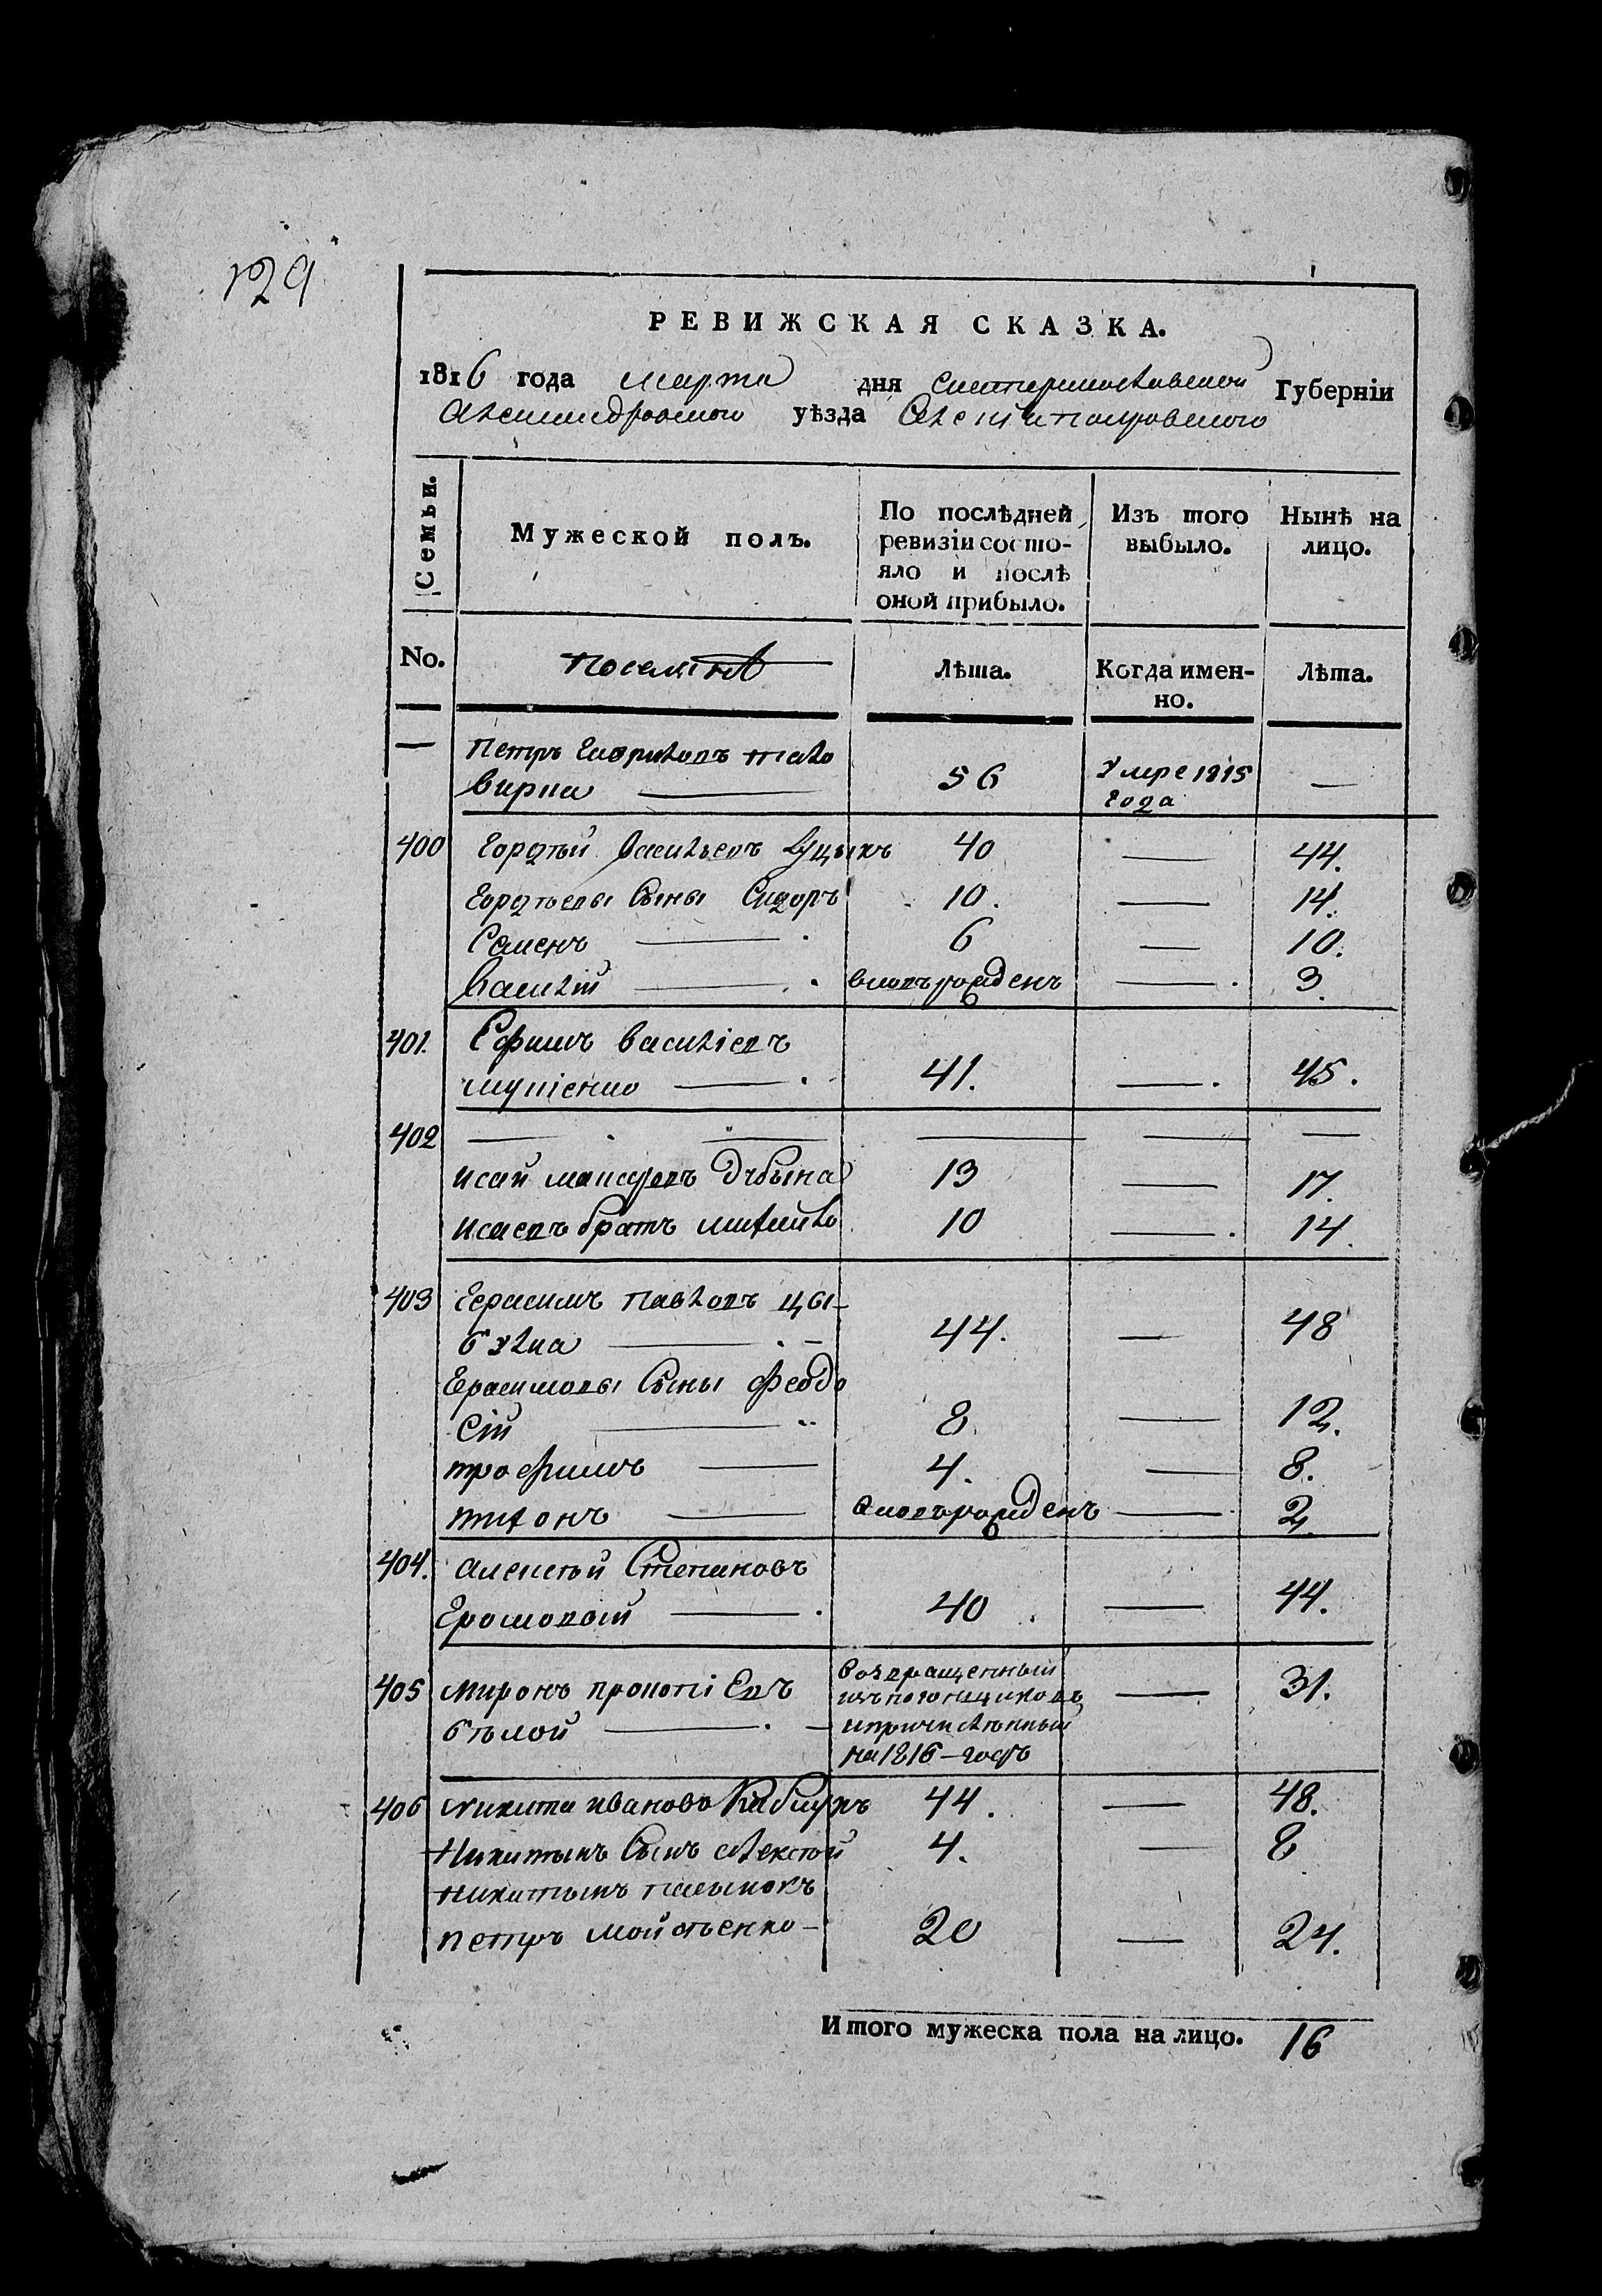 129
РЕВИЖСКАЯ СКАЗКА.
1816 года марта дня Екатеринославской Губерніи
Александровского уѣзда
Семьи.
Мужеской полъ.
По послѣдней ревизіи состояло и послѣ оной прибыло.
Изъ того выбыло.
Нынѣ на лицо.
No.
Лѣта.
Когда именно.
Лѣта.
— Петръ
56 Умре 1815 года —
400 Гордѣй Васильевъ 40 — 44.
Гордѣевы Сыны Сидоръ 10. — 14.
Семенъ — 6 — 10.
Василій — вновьрожденъ — 3.
401. Ефимъ Василіевъ
— 41. — 45.
402 — — — — —
Исай 13 — 17.
Исаевъ братъ Михайло 10 — 14.
403 Герасимъ Павловъ Цы-
булка — 44. — 48
Герасимовы Сыны Феодо
сій — 8. — 12.
трофимъ — 4. — 8.
тихонъ — вновьрожденъ — 2.
404. Алексѣй Степановъ
— 40 — 44.
405 Миронъ прокопіевъ
бѣлой — Возвращенный изъ погонщиковъ и причисленный на 1816-годъ — 31.
406 Никита Ивановъ 44. — 48.
Никитинъ Сынъ Алексѣй 4. — 8
Никитинъ пасынокъ
петръ 20 — 24.
Итого мужеска пола на лицо. 16